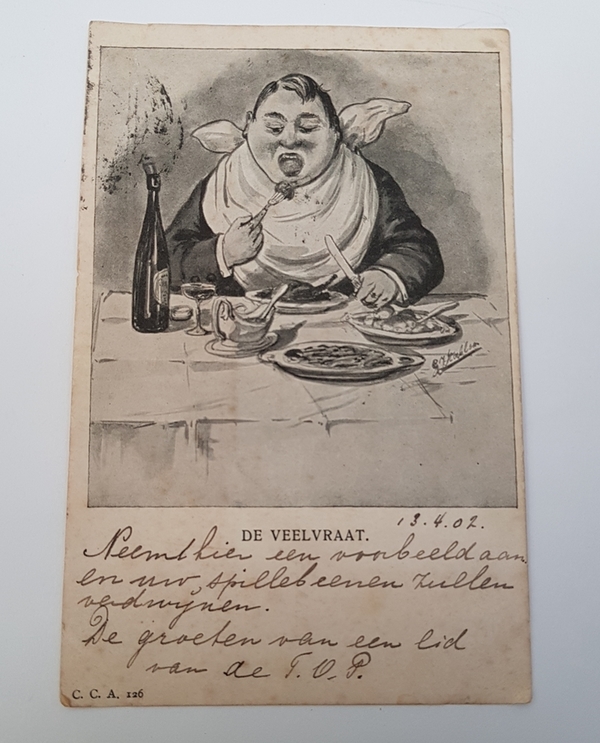 DE VEELVRAAT.
13.4.02.
Neemt hier een voorbeeld aan
en uw spillebeenen zullen
verdwijnen.
De groeten van een lid
van de T.O.P.
C. C. A. 126